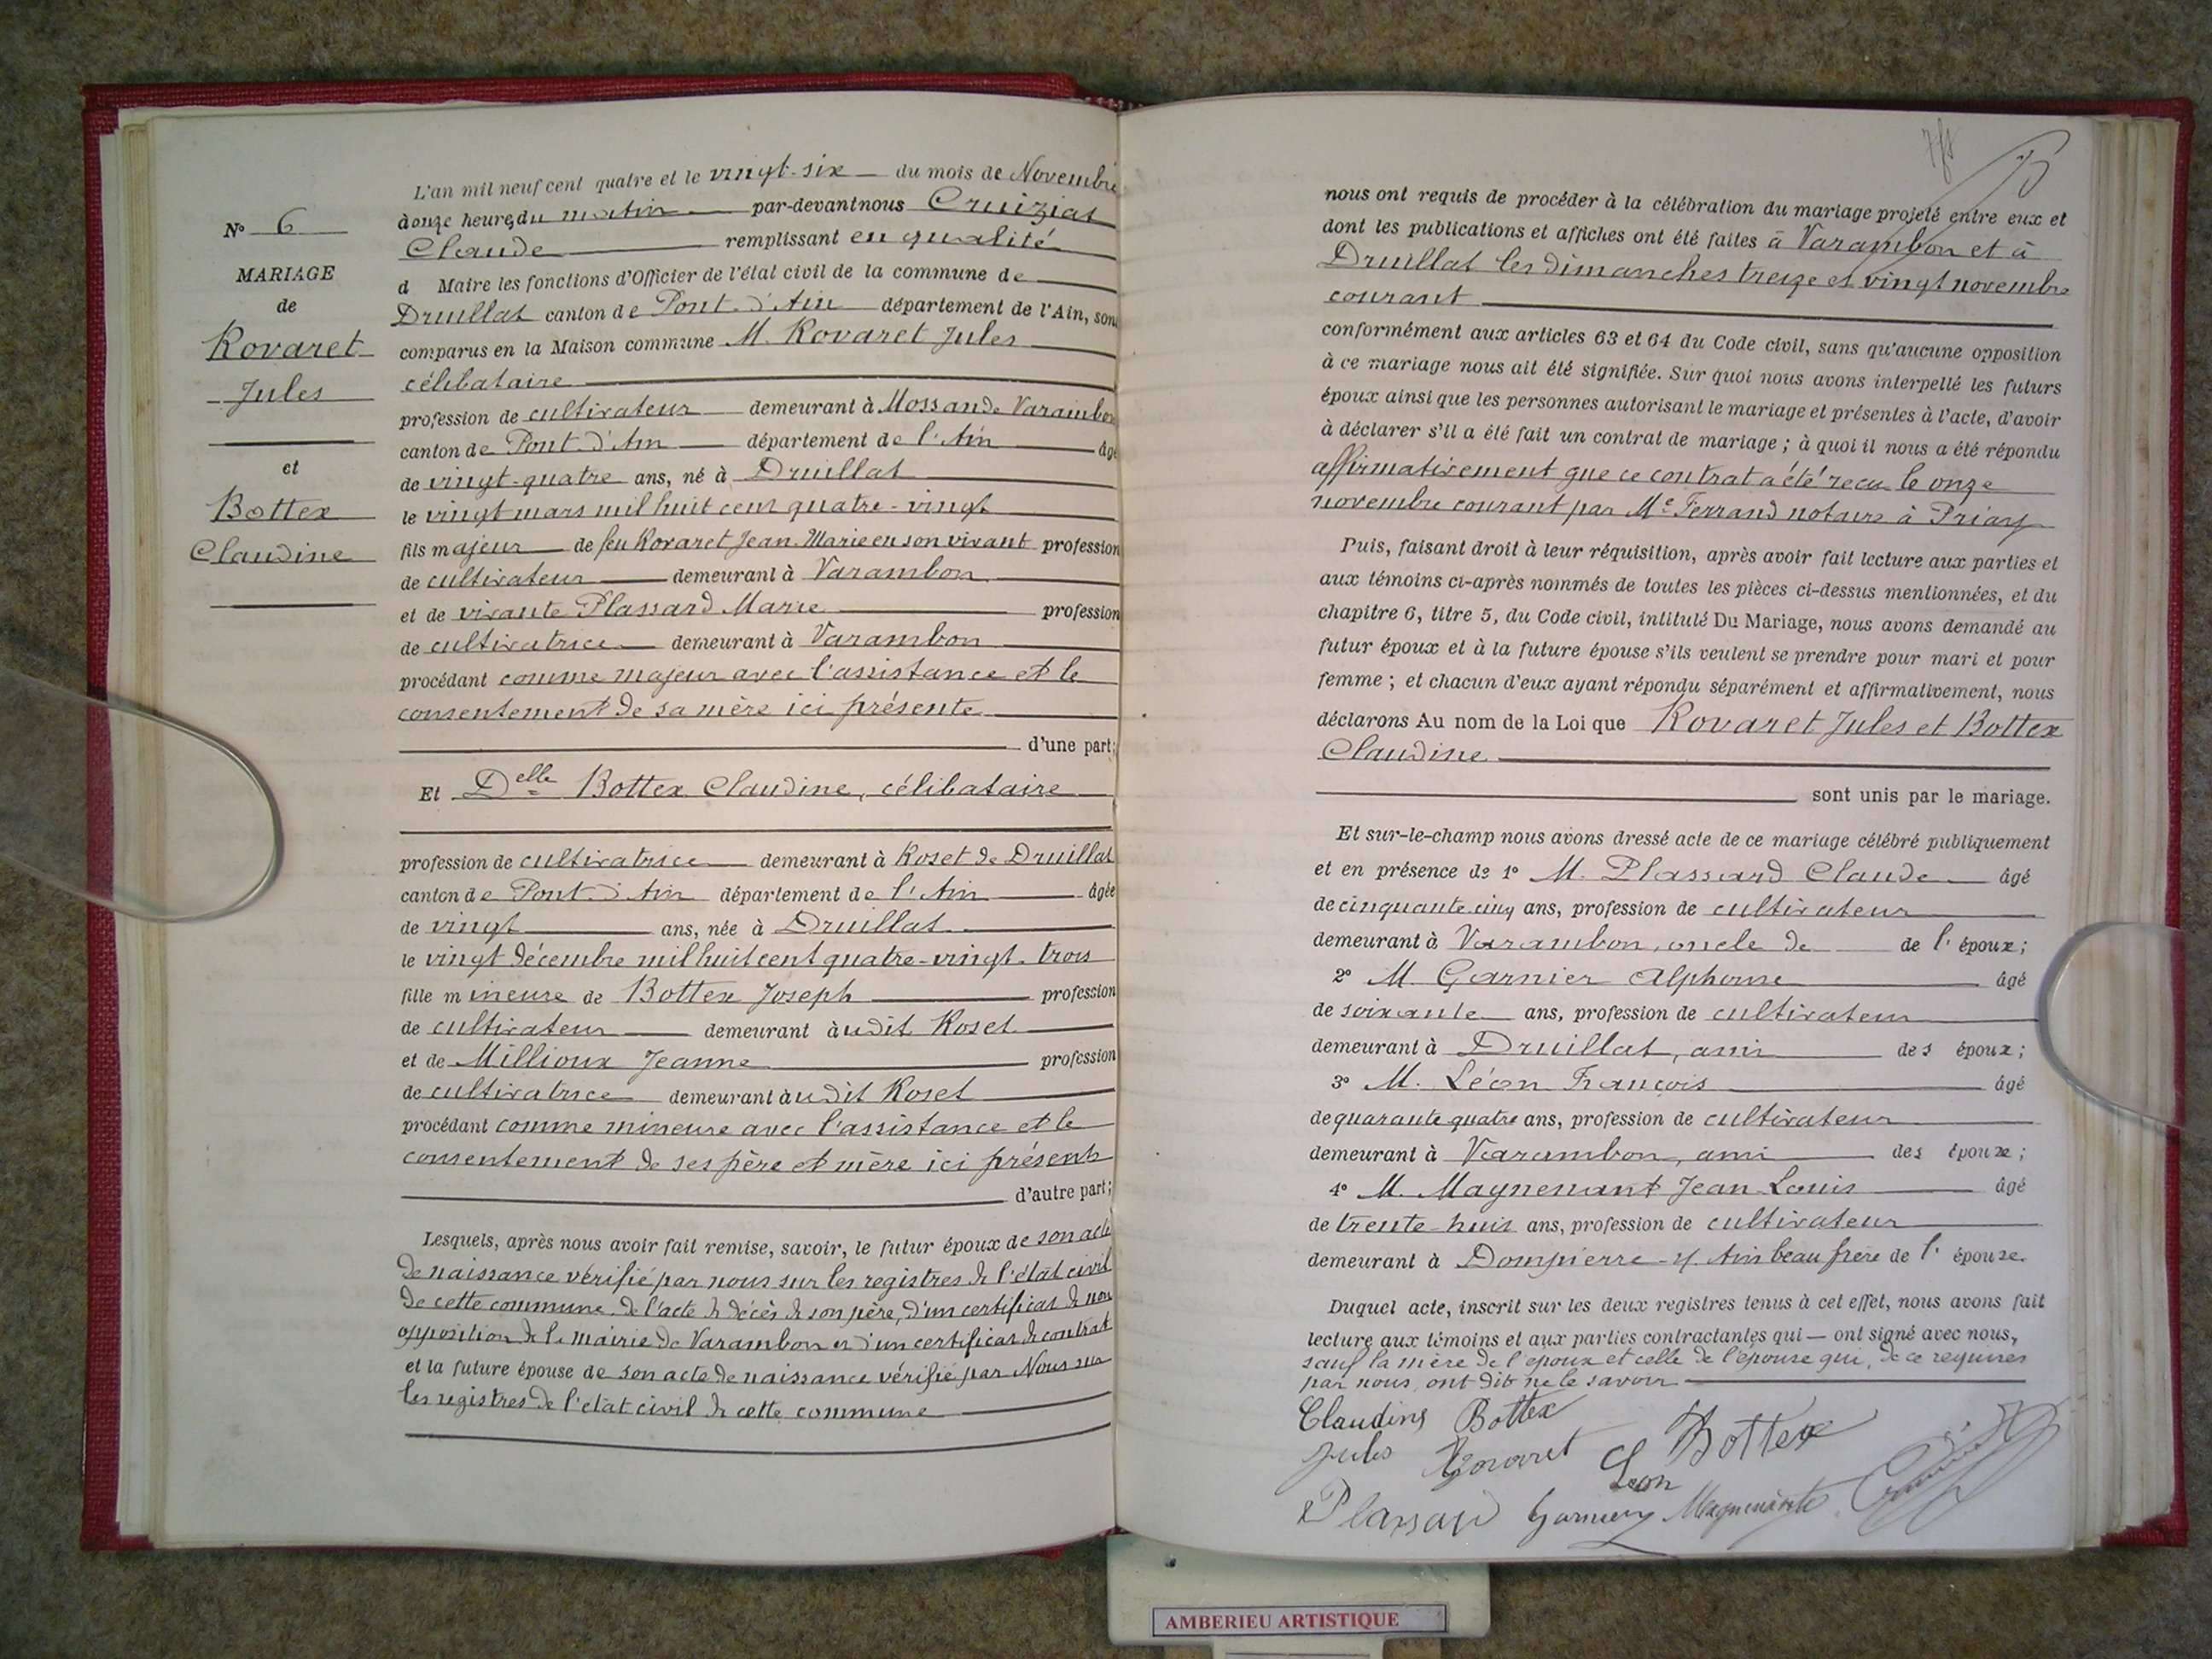 N° 6
MARIAGE
de
Rovaret
Jules
et
Bottex
Claudine
L'an mil neuf cent quatre et le vingt-six du mois de Novembre
à onze heures du matin par-devant nous Cruiziat
Claude remplissant en qualité
d Maire les fonctions d'Officier de l'état civil de la commune de
Druillat canton de Pont-d'Ain département de l'Ain, sont
comparus en la Maison commune M. Rovaret Jules
célibataire
profession de cultivateur demeurant à Mossan de Varambon
canton de Pont-d'Ain département de l'Ain âgé
de vingt-quatre ans, né à Druillat
le vingt mars mil huit cent quatre-vingt
fils majeur de feu Rovaret Jean-Marie en son vivant profession
de cultivateur demeurant à Varambon
et de vivante Plassard Marie profession
de cultivatrice demeurant à Varambon
procédant comme majeur avec l'assistance et le
consentement de sa mère ici présente
d'une part;
Et Delle Bottex Claudine, célibataire
profession de cultivatrice demeurant à Roset de Druillat
canton de Pont-d'Ain département de l'Ain âgée
de vingt ans, née à Druillat
le vingt décembre mil huit cent quatre-vingt-trois
fille mineure de Bottex Joseph profession
de cultivateur demeurant àudit Roset
et de Millioux Jeanne profession
de cultivatrice demeurant àudit Roset
procédant comme mineure avec l'assistance et le
consentement de ses père et mère ici présents
d'autre part;
Lesquels, après nous avoir fait remise, savoir, le futur époux de son acte
de naissance vérifié par nous sur les registres de l'état civil
de cette commune, de l'acte de décès de son père, d'un certificat de non
opposition de la mairie de Varambon et d'un certificat de contrat
et la future épouse de son acte de naissance vérifié par Nous sur
les registres de l'état civil de cette commune
nous ont requis de procéder à la célébration du mariage projeté entre eux et
dont les publications et affiches ont été faites à Varambon et à
Druillat les dimanches treize et vingt novembre
courant
conformément aux articles 63 et 64 du Code civil, sans qu'aucune opposition
à ce mariage nous ait été signifiée. Sur quoi nous avons interpellé les futurs
époux ainsi que les personnes autorisant le mariage et présentes à l'acte, d'avoir
à déclarer s'il a été fait un contrat de mariage ; à quoi il nous a été répondu
affirmativement que ce contrat a été reçu le onze
novembre courant par Me Ferrand notaire à Priay
Puis, faisant droit à leur réquisition, après avoir fait lecture aux parties et
aux témoins ci-après nommés de toutes les pièces ci-dessus mentionnées, et du
chapitre 6, titre 5, du Code civil, intitulé Du Mariage, nous avons demandé au
futur époux et à la future épouse s'ils veulent se prendre pour mari et pour
femme ; et chacun d'eux ayant répondu séparément et affirmativement, nous
déclarons Au nom de la Loi que Rovaret Jules et Bottex
Claudine
sont unis par le mariage.
Et sur-le-champ nous avons dressé acte de ce mariage célébré publiquement
et en présence de 1° M. Plassard Claude âgé
de cinquante cinq ans, profession de cultivateur
demeurant à Varambon, oncle de de l' époux;
2° M. Garnier Alphonse âgé
de soixante ans, profession de cultivateur
demeurant à Druillat, ami des époux;
3° M. Léon François âgé
de quarante quatre ans, profession de cultivateur
demeurant à Varambon, ami des époux;
4° M. Magnenant Jean-Louis âgé
de trente-huit ans, profession de cultivateur
demeurant à Dompierre-s/-Ain beau frère de l' épouse.
Duquel acte, inscrit sur les deux registres tenus à cet effet, nous avons fait
lecture aux témoins et aux parties contractantes qui — ont signé avec nous,
sauf la mère de l'époux et celle de l'épouse qui, de ce requises
par nous, ont dit ne le savoir
Claudine Bottex
Jules Rovaret Bottex
Léon
Plassard Garnier Magnenant Cruiziat
AMBERIEU ARTISTIQUE